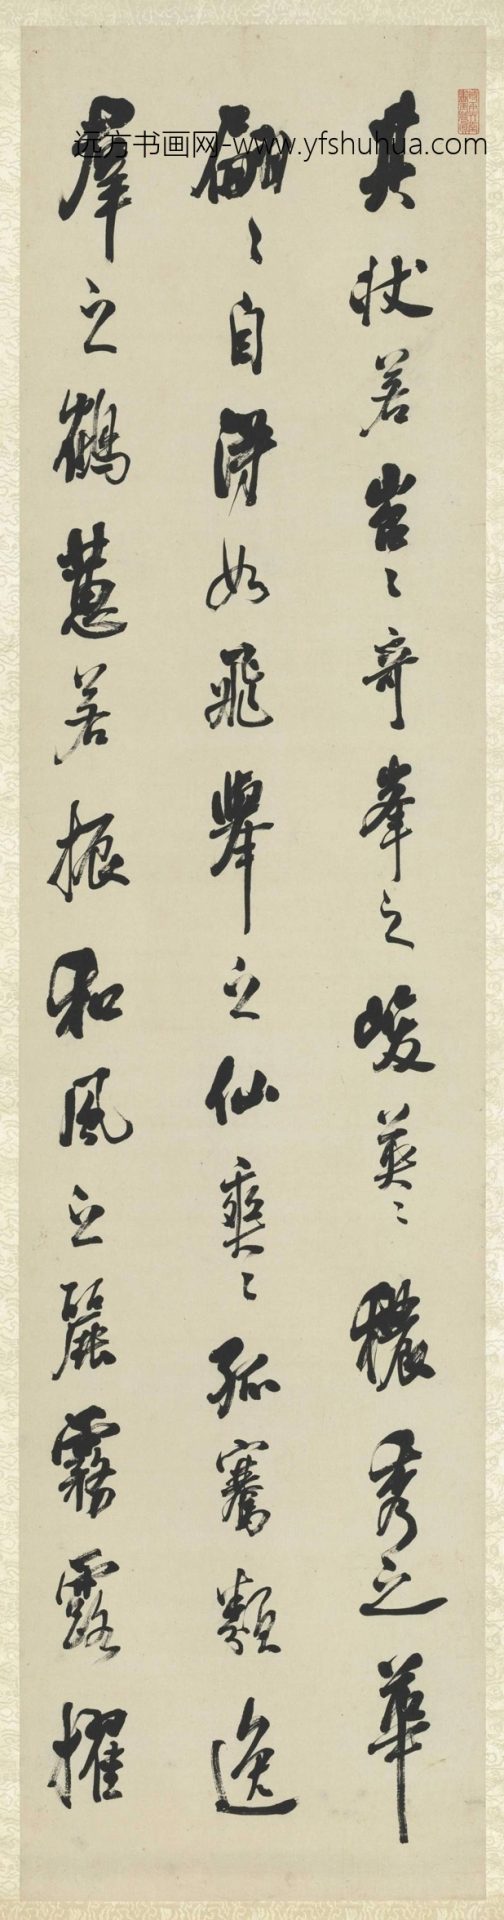 其状若岩〻奇峯之峻英〻穠秀之華
翩〻自得如飛舉之仙爽〻孤騫類逸
羣之鶴蕙若振和風之麗霧露擢
远方书画网-www.yfshuhua.com